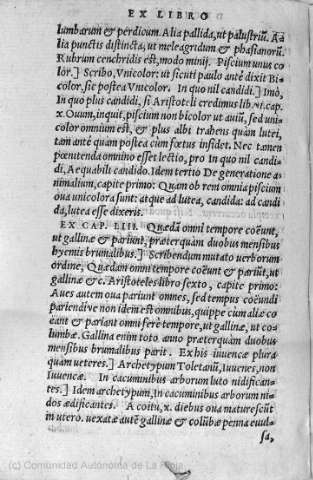 EX LIBRO
lumbarum & perdicum. Alia pallida, ut palustriū. A-
lia punctis distincta, ut meleagridum & phasianorū.
Rubrum cenchridis est, modo minij. Piscium unus co
lor.] Scribo, Vnicolor: ut sicuti paulo antè dixit Bi-
color, sic postea Vnicolor. In quo nil candidi.] Imò,
In quo plus candidi, si Aristoteli credimus lib. vi. cap.
x. Ouum, inquit, piscium non bicolor ut auiū, sed uni-
color omnium est, & plus albi trahens quàm lutei,
tam antè quàm postea cùm fœtus insidet. Nec tamen
pœnitenda omnino esset lectio, pro In quo nil candi-
di, Aequabili candido. Idem tertio De generatione a-
nimalium, capite primo: Quam ob rem omnia piscium
oua unicolora sunt: atque ad lutea, candida: ad candi
da, lutea esse dixeris.
EX CAP. LIII. Quædā omni tempore coëunt,
ut gallinæ & pariunt, præterquàm duobus mensibus
hyemis brumalibus.] Scribendum mutato uerborum
ordine, Quædam omni tempore coëunt & pariūt, ut
gallinæ &c. Aristoteles libro sexto, capite primo:
Aues autem oua pariunt omnes, sed tempus coëundi
pariendíve non idem est omnibus, quippe cùm aliæ co
eant & pariant omni ferè tempore, ut gallinæ, ut co-
lumbæ. Gallina enim toto anno præterquàm duobus
mensibus brumalibus parit. Ex his iuuencæ plura
quàm ueteres.] Archetypum Toletanū, Iuuenes, non
Iuuencæ. In cacuminibus arborum luto nidifican-
tes.] Idem archetypum, In cacuminibus arborum ni-
dos ædificantes. A coitu, x. diebus oua maturescūt
in utero. uexatæ autē gallinæ & colūbæ penna euul-
sa,
(c) Comunidad Autónoma de La Rioja